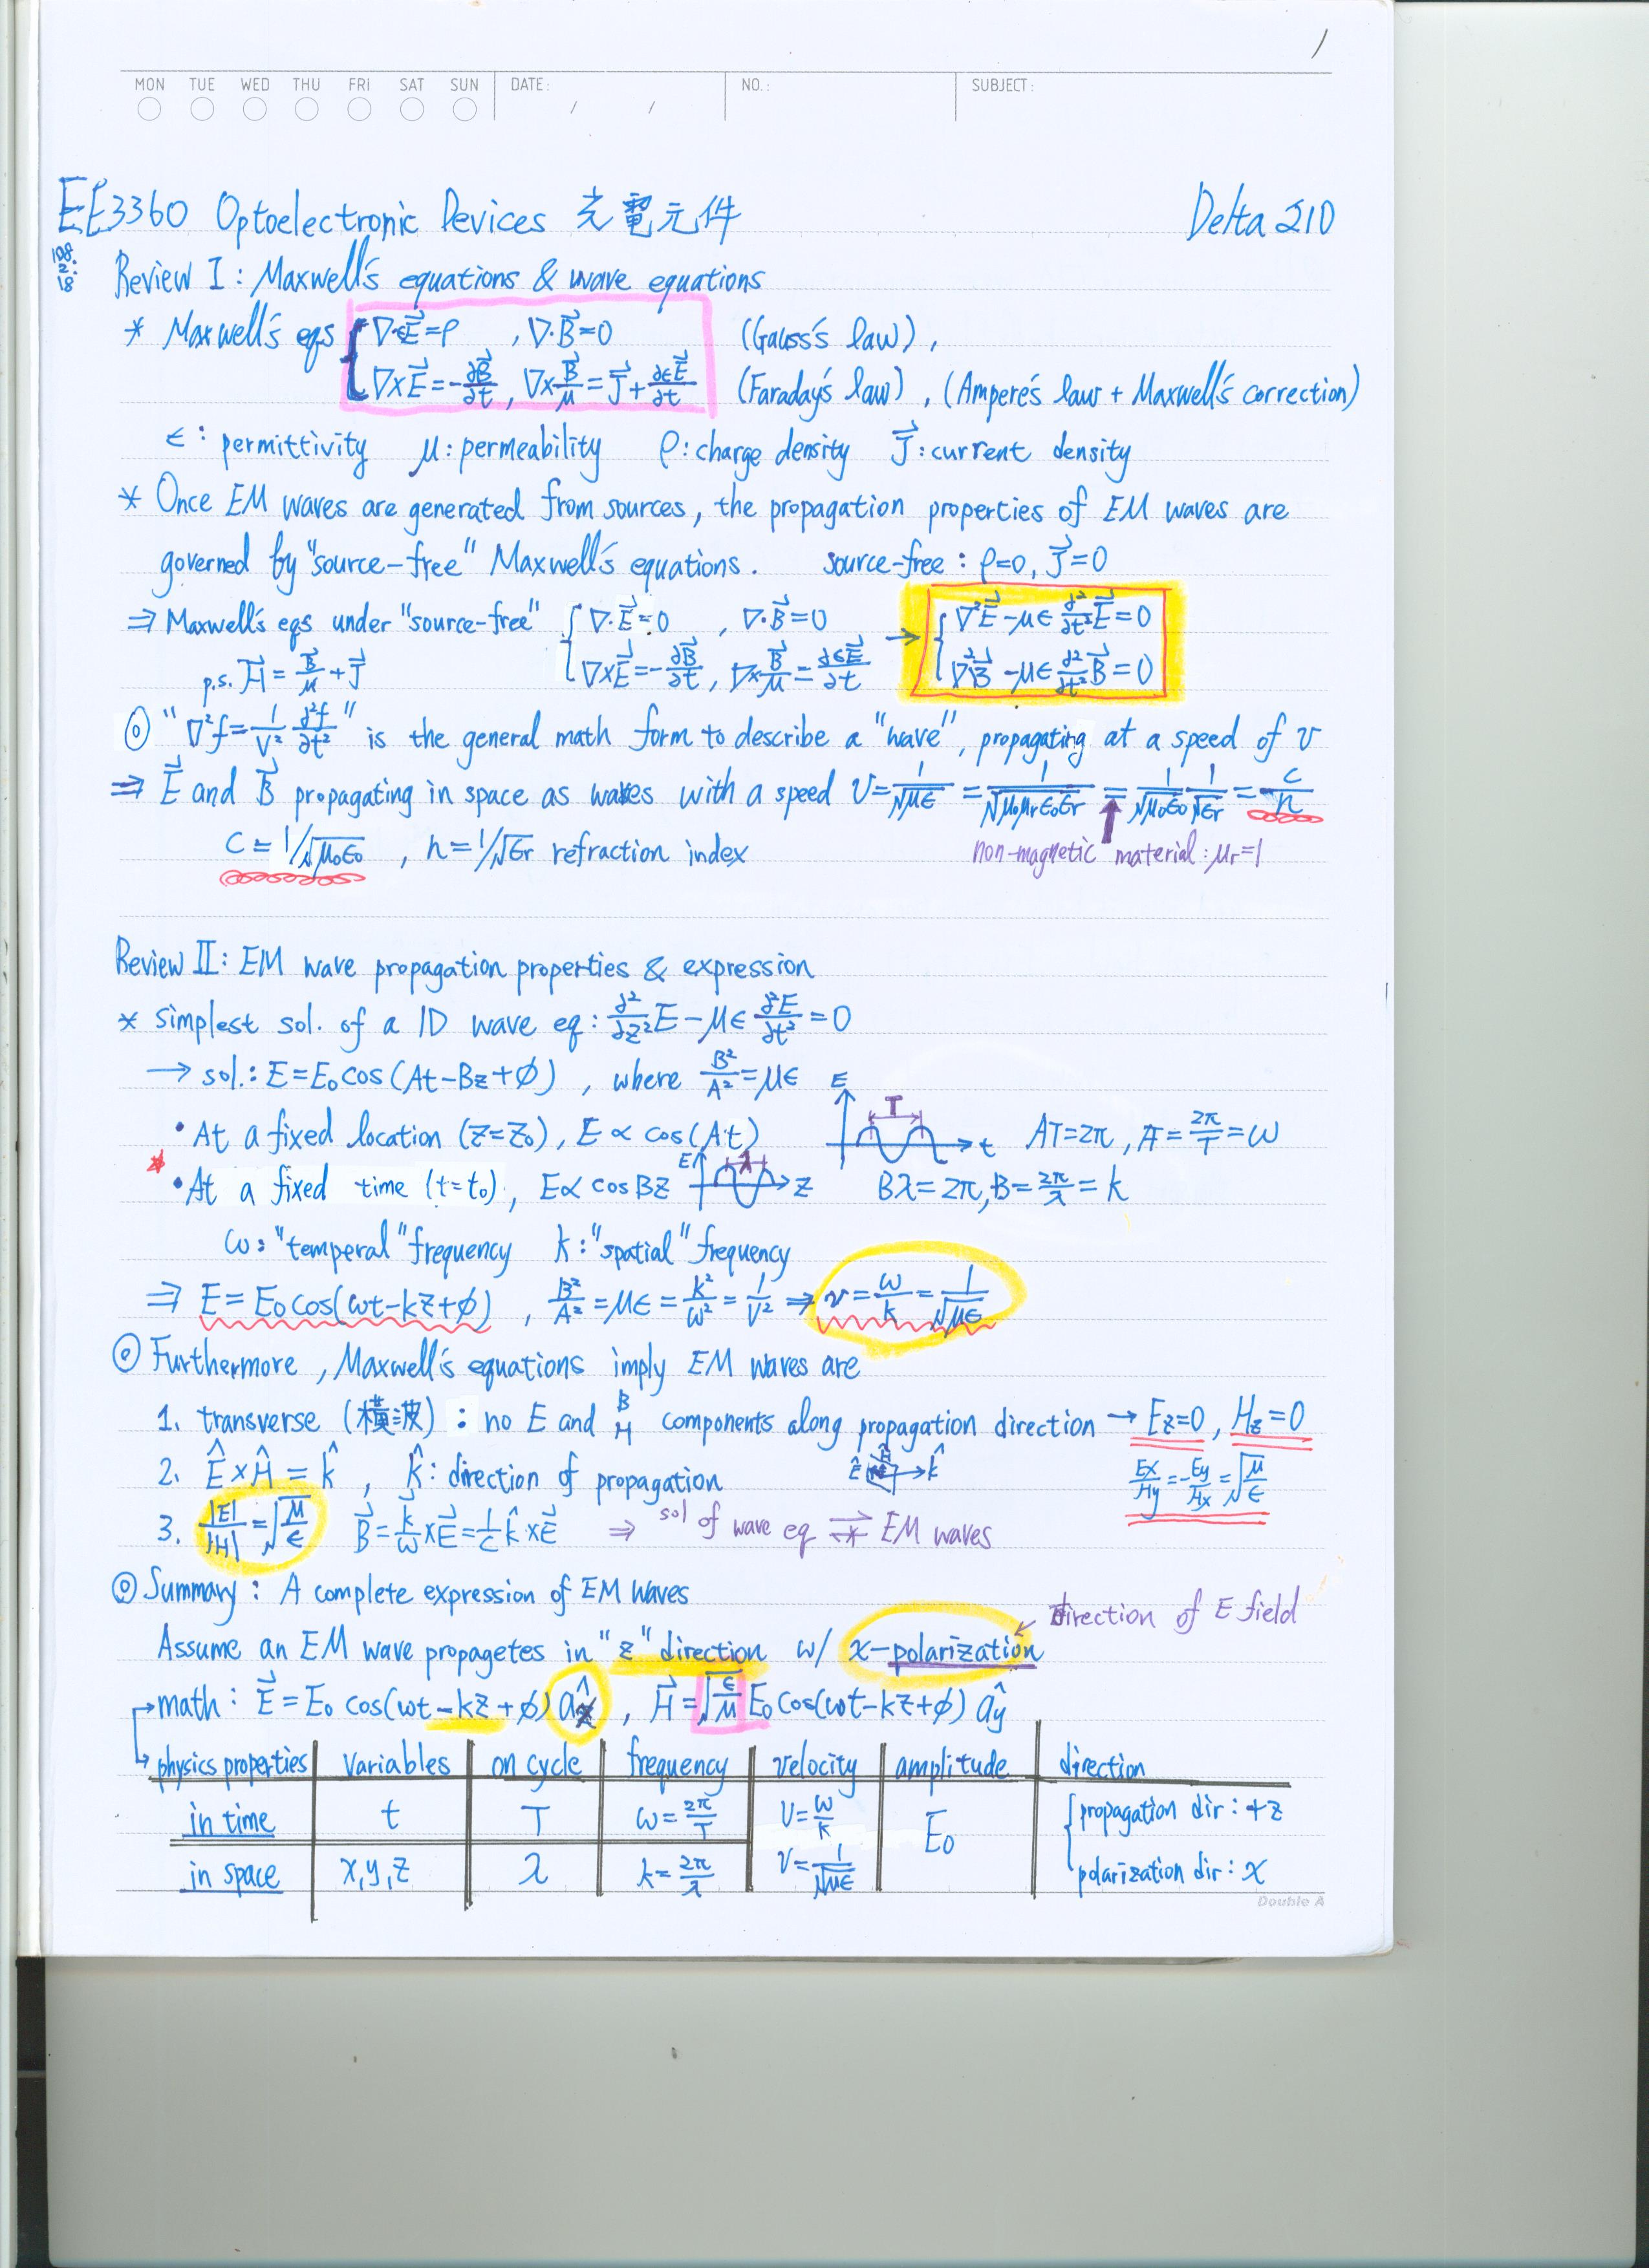 1
MON TUE WED THU FRI SAT SUN DATE: / / NO.: SUBJECT:
EE3360 Optoelectronic Devices 光電元件 Delta 210
108.2.18
Review I: Maxwell's equations & wave equations
* Maxwell's eqs { ∇·ϵE⃗=ρ , ∇·B⃗=0 (Gauss's law),
∇×E⃗=-∂B⃗/∂t , ∇×B⃗/μ=J⃗+∂ϵE⃗/∂t (Faraday's law), (Ampere's law + Maxwell's correction)
ϵ: permittivity μ: permeability ρ: charge density J⃗: current density
* Once EM waves are generated from sources, the propagation properties of EM waves are
governed by "source-free" Maxwell's equations. source-free: ρ=0, J⃗=0
⇒ Maxwell's eqs under "source-free" { ∇·E⃗=0 , ∇·B⃗=0 → { ∇²E⃗-μϵ ∂²/∂t² E⃗=0
p.s. H⃗=B⃗/μ+J⃗ ∇×E⃗=-∂B⃗/∂t , ∇×B⃗/μ=∂ϵE⃗/∂t ∇²B⃗-μϵ ∂²/∂t² B⃗=0
◎ "∇²f=1/V² ∂²f/∂t²" is the general math form to describe a "wave", propagating at a speed of v
⇒ E⃗ and B⃗ propagating in space as waves with a speed v=1/√μϵ = 1/√μ₀μrϵ₀ϵr = 1/√μ₀ϵ₀ 1/√ϵr = c/n
c=1/√μ₀ϵ₀ , n=1/√ϵr refraction index non-magnetic material: μr=1
Review II: EM wave propagation properties & expression
* simplest sol. of a 1D wave eq: ∂²/∂z² E-μϵ ∂²E/∂t²=0
→ sol.: E=E₀cos(At-Bz+ϕ) , where B²/A²=μϵ
• At a fixed location (z=z₀), E ∝ cos(At) E T t AT=2π, A=2π/T=ω
* • At a fixed time (t=t₀), E∝ cosBz E λ z Bλ=2π, B=2π/λ=k
ω: "temperal" frequency k: "spatial" frequency
⇒ E=E₀cos(ωt-kz+ϕ) , B²/A²=μϵ=k²/ω²=1/V² ⇒ v=ω/k=1/√μϵ
◎ Furthermore, Maxwell's equations imply EM waves are
1. transverse (橫波): no E and B H components along propagation direction → Ez=0, Hz=0
2. Ê×Ĥ=k̂ , k̂: direction of propagation Ê Ĥ k̂ Ex/Hy=-Ey/Hx=√μ/ϵ
3. |E|/|H|=√μ/ϵ B⃗=k⃗/ω×E⃗=1/c k̂×E⃗ ⇒ sol of wave eq ⇌ EM waves
◎ Summary: A complete expression of EM waves
direction of E field
Assume an EM wave propagetes in "z" direction w/ x-polarization
math: E⃗=E₀ cos(ωt-kz+ϕ) âx , H⃗=√ϵ/μ E₀ cos(ωt-kz+ϕ) ây
physics properties variables on cycle frequency velocity amplitude direction
in time t T ω=2π/T V=ω/k E₀ { propagation dir: +z
in space x,y,z λ k=2π/λ V=1/√μϵ polarization dir: x
Double A